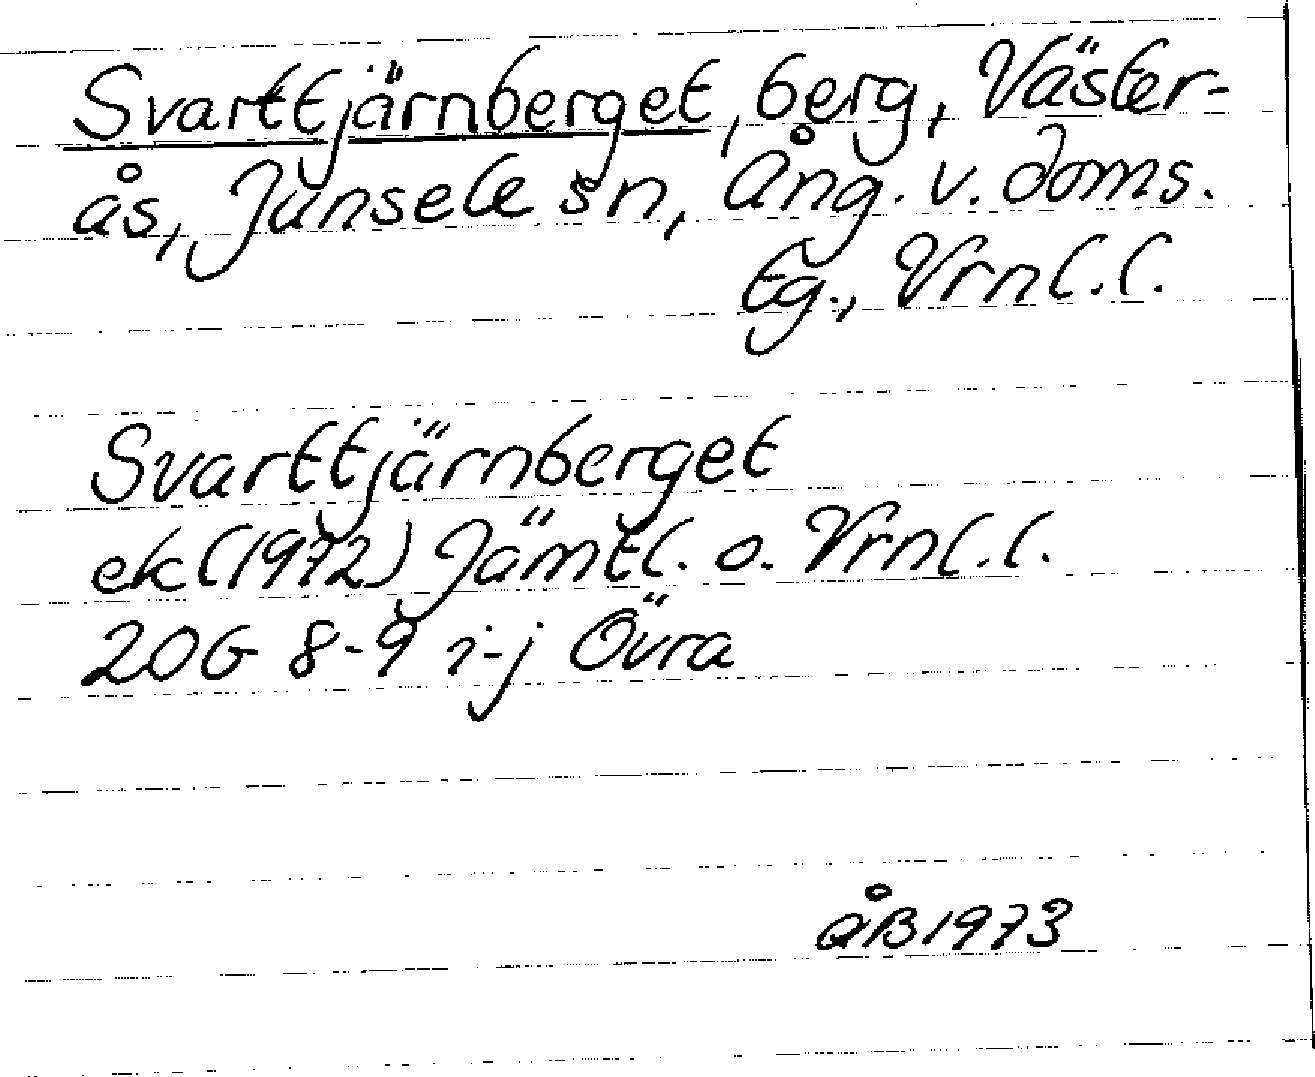 Svarttjärnberget, berg, Väster-
ås, Junsele sn, Ång. v. doms.
tg., Vrnl.l.
Svarttjärnberget
ek(1972) Jämtl. o. Vrnl.l.
20G 8-9 i-j Övra
åB 1973